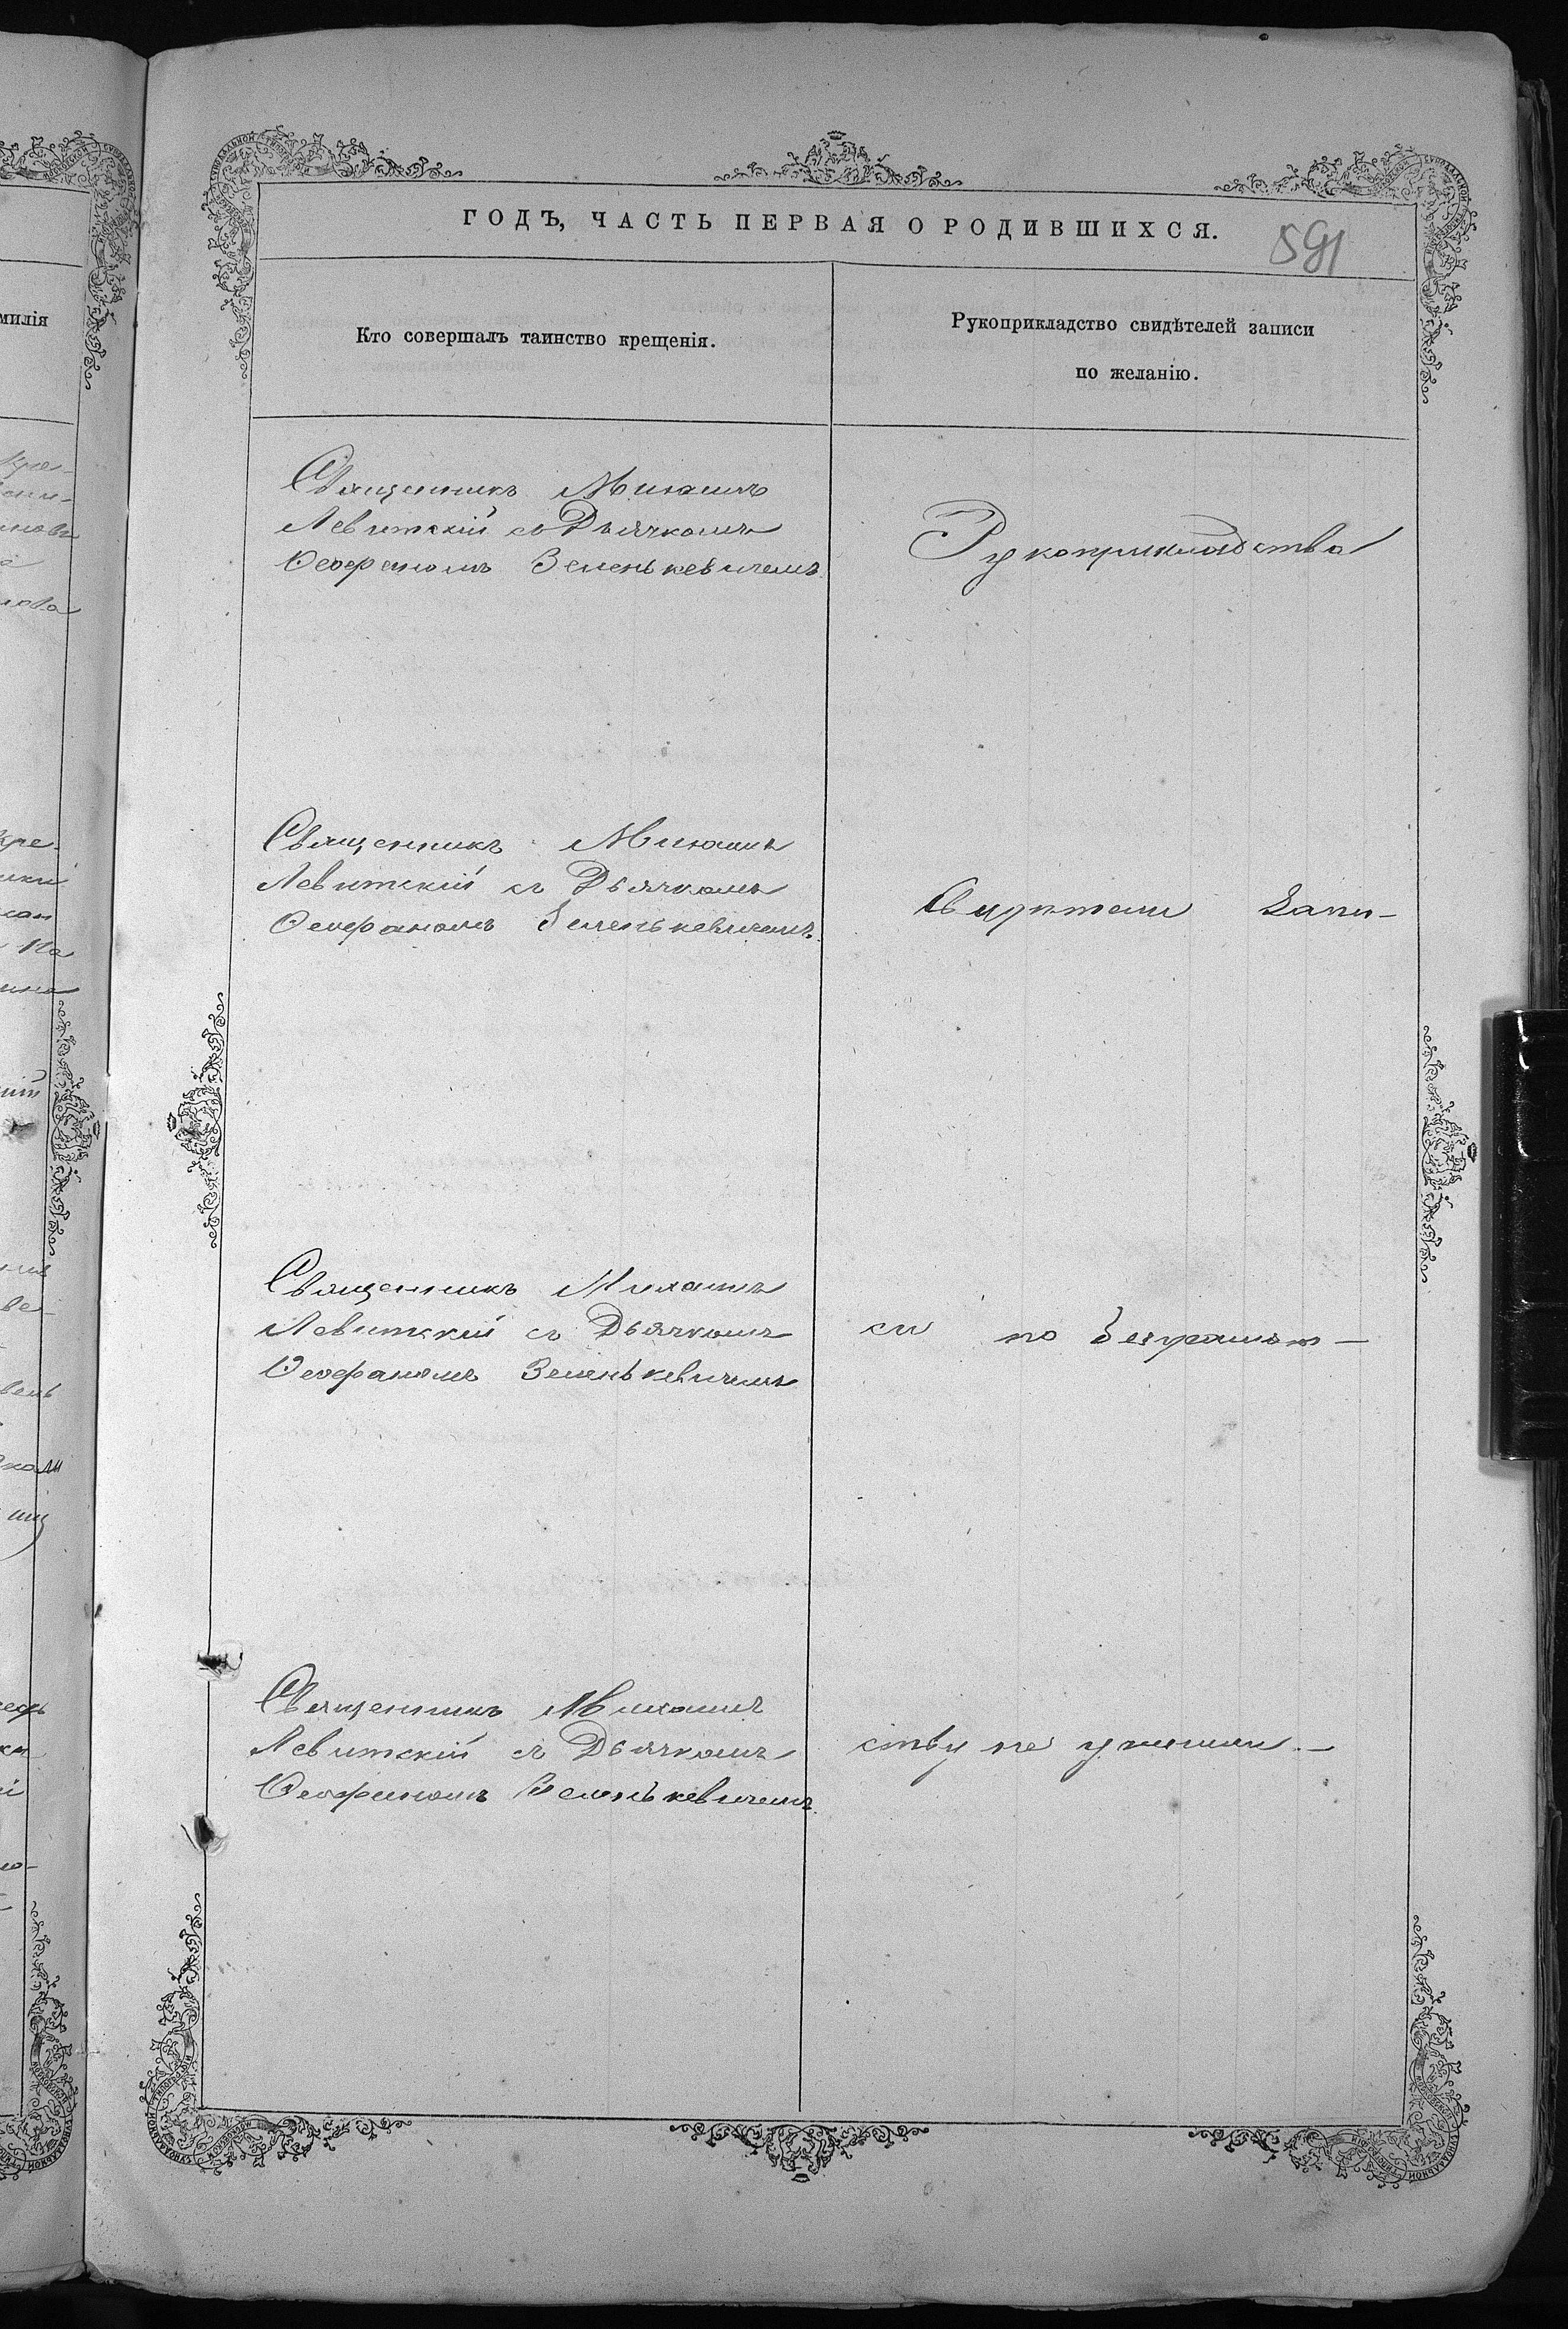 ГОДЪ, ЧАСТЬ ПЕРВАЯ О РОДИВШИХСЯ.
591
милія
Кто совершалъ таинство крещенія.
Рукоприкладство свидѣтелей записи
по желанію.
Священникъ Михаилъ
Левитскій съ Дьячкомъ
Ѳеофаномъ Зеленькевичемъ
Рукоприкладства
Священникъ Михаилъ
Левитскій съ Дьячкомъ
Ѳеофаномъ Зеленькевичемъ.
Свидѣтели Запи-
Священникъ Михаилъ
Левитскій съ Дьячкомъ
Ѳеофаномъ Зеленькевичемъ
си по безграмот-
Священникъ Михаилъ
Левитскій съ Дьячкомъ
Ѳеофаномъ Зеленькевичемъ.
ству не учинили. —